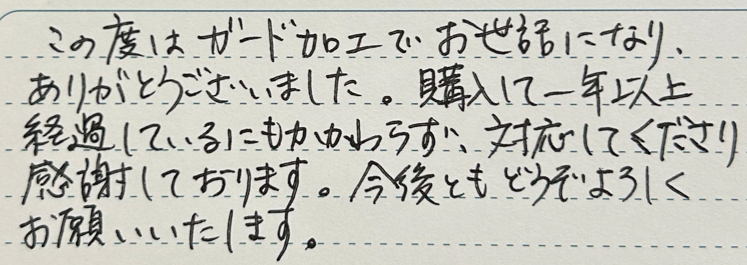 この度はガード加工でお世話になり、
ありがとうございました。購入して一年以上
経過しているにもかかわらず、対応してくださり
感謝しております。今後ともどうぞよろしく
お願いいたします。